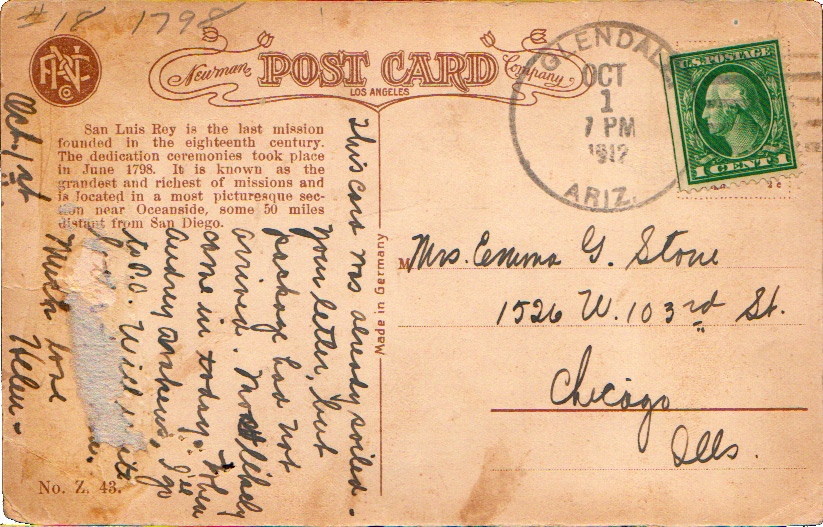 # 18 1798
Newman POST CARD Company
LOS ANGELES
GLENDALE
OCT
1
7 PM
1912
ARIZ.
U.S. POSTAGE
1 CENT 1
San Luis Rey is the last mission
founded in the eighteenth century.
The dedication ceremonies took place
in June 1798. It is known as the
grandest and richest of missions and
is located in a most picturesque sec-
tion near Oceanside, some 50 miles
distant from San Diego.
Oct. 1st.
This card was already soiled.
Your letter, but
package had not
arrived. Most likely
come in today. When
Audrey answers, I'll go
to P.O. Will
Much love
Helen-
Made in Germany
Mrs. Emma G. Stone
1526 W. 103rd St.
Chicago
Ills.
No. Z. 43.